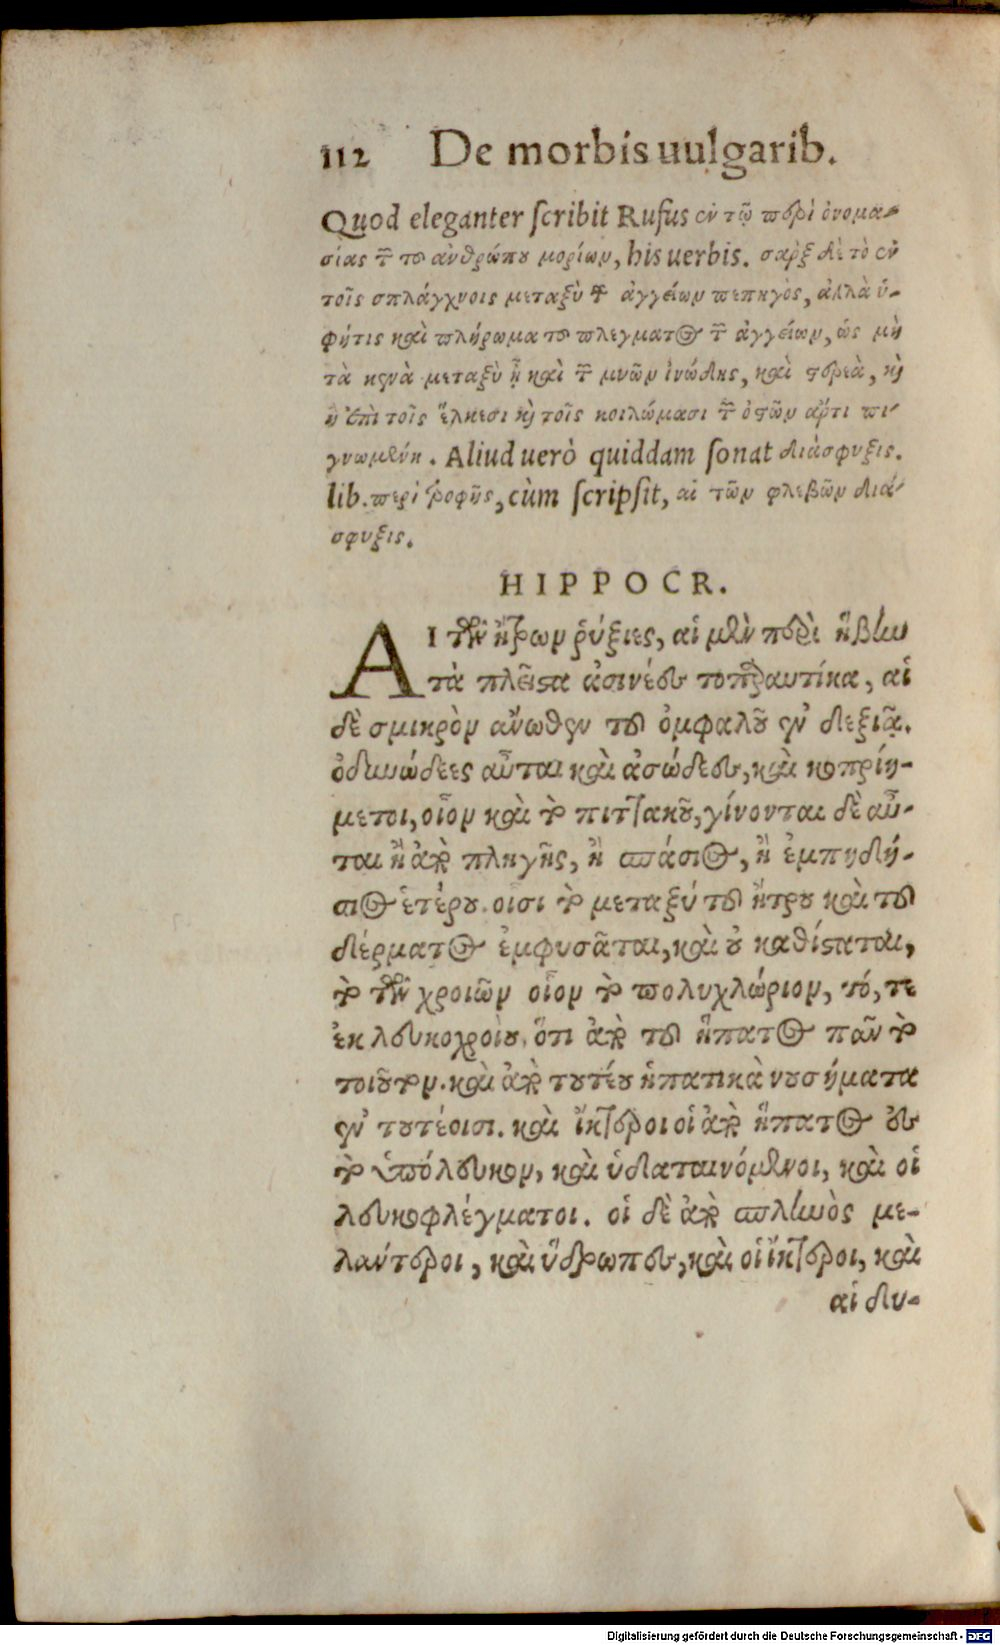 112 De morbis uulgarib.
Quod eleganter scribit Rufus ἐν τῷ περὶ ὀνομα-
σίας τῶν τοῦ ἀνθρώπου μορίων, his uerbis. σὰρξ δὲ τὸ ἐν
τοῖς σπλάγχνοις μεταξὺ τῶν ἀγγείων πεπηγὸς, ἀλλὰ ὑ-
φῆτις καὶ πλήρωμα τοῦ πλέγματος τῶν ἀγγείων, ὡς μὴ
τὰ κενὰ μεταξὺ ᾖ καὶ τῶν μυῶν ἰνώδης, καὶ στερεὰ, καὶ
ἡ ἐπὶ τοῖς ἕλκεσι καὶ τοῖς κοιλώμασι τῶν ὀστῶν ἄρτι πι-
γνωμένη. Aliud uerò quiddam sonat διάσφυξις.
lib. περὶ τροφῆς, cùm scripsit, αἱ τῶν φλεβῶν διά-
σφυξις.
HIPPOCR.
ΑΙ τῶν ἤτρων ῥύξιες, αἱ μὲν περὶ ἥβην
τὰ πλεῖστα ἀσινέες τοπαραυτίκα, αἱ
δὲ σμικρὸν ἄνωθεν τοῦ ὀμφαλοῦ ἐν δεξιᾷ.
ὀδυνώδεες αὗται καὶ ἀσώδεες, καὶ κοπρίη-
μετοι, οἷον καὶ τὸ πιττακοῦ, γίνονται δὲ αὗ-
ται ἢ ἀπὸ πληγῆς, ἢ σπάσιος, ἢ ἐμπηδή-
σιος ἑτέρου. οἷσι τὸ μεταξύ τοῦ ἤτρου καὶ τοῦ
δέρματος ἐμφυσᾶται, καὶ οὐ καθίσταται,
τὸ τῶν χροιῶν οἷον τὸ πολυχλώριον, τό, τε
ἐκ λευκοχρόου, ὅτι ἀπὸ τοῦ ἥπατος πᾶν τὸ
τοιοῦτον. καὶ ἀπὸ τουτέου ἡπατικὰ νουσήματα
ἐν τουτέοισι. καὶ ἴκτεροι οἱ ἀπὸ ἥπατος ἐς
τὸ ὑπόλευκον, καὶ ὑδαταινόμενοι, καὶ οἱ
λευκοφλέγματοι. οἱ δὲ ἀπὸ σπληνὸς με-
λάντεροι, καὶ ὕδρωπες, καὶ οἱ ἴκτεροι, καὶ
αἱ δυ-
Digitalisierung gefördert durch die Deutsche Forschungsgemeinschaft - DFG